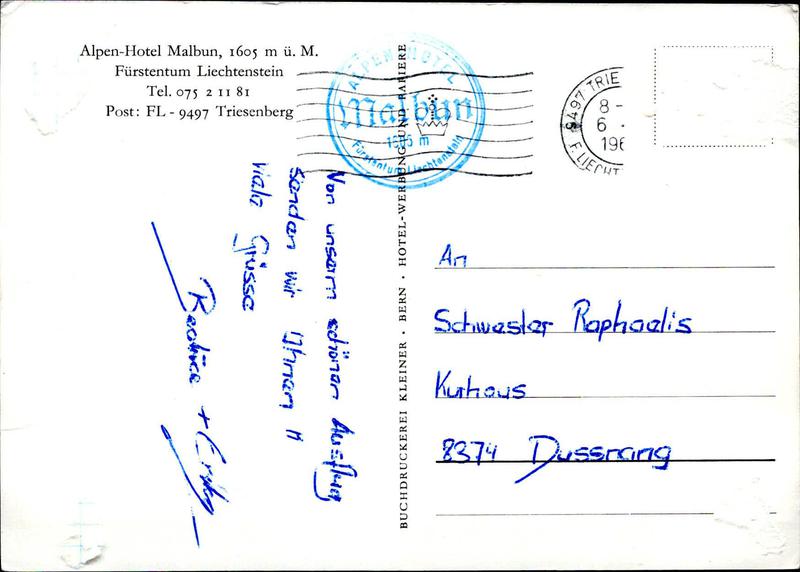 Alpen-Hotel Malbun, 1605 m ü. M.
Fürstentum Liechtenstein
Tel. 075 2 11 81
Post: FL - 9497 Triesenberg
ALPEN-HOTEL
Malbun
1605 m
Fürstentum Liechtenstein
9497 TRIE
8-
6.
196
F.LIECHT
Von unserm schönen Ausflug
senden wir Ihnen
viele Grüsse
Beatrice +
BUCHDRUCKEREI KLEINER · BERN · HOTEL-WERBUNG UND PAPIERE
An
Schwester Raphaelis
Kurhaus
8374 Dussnang